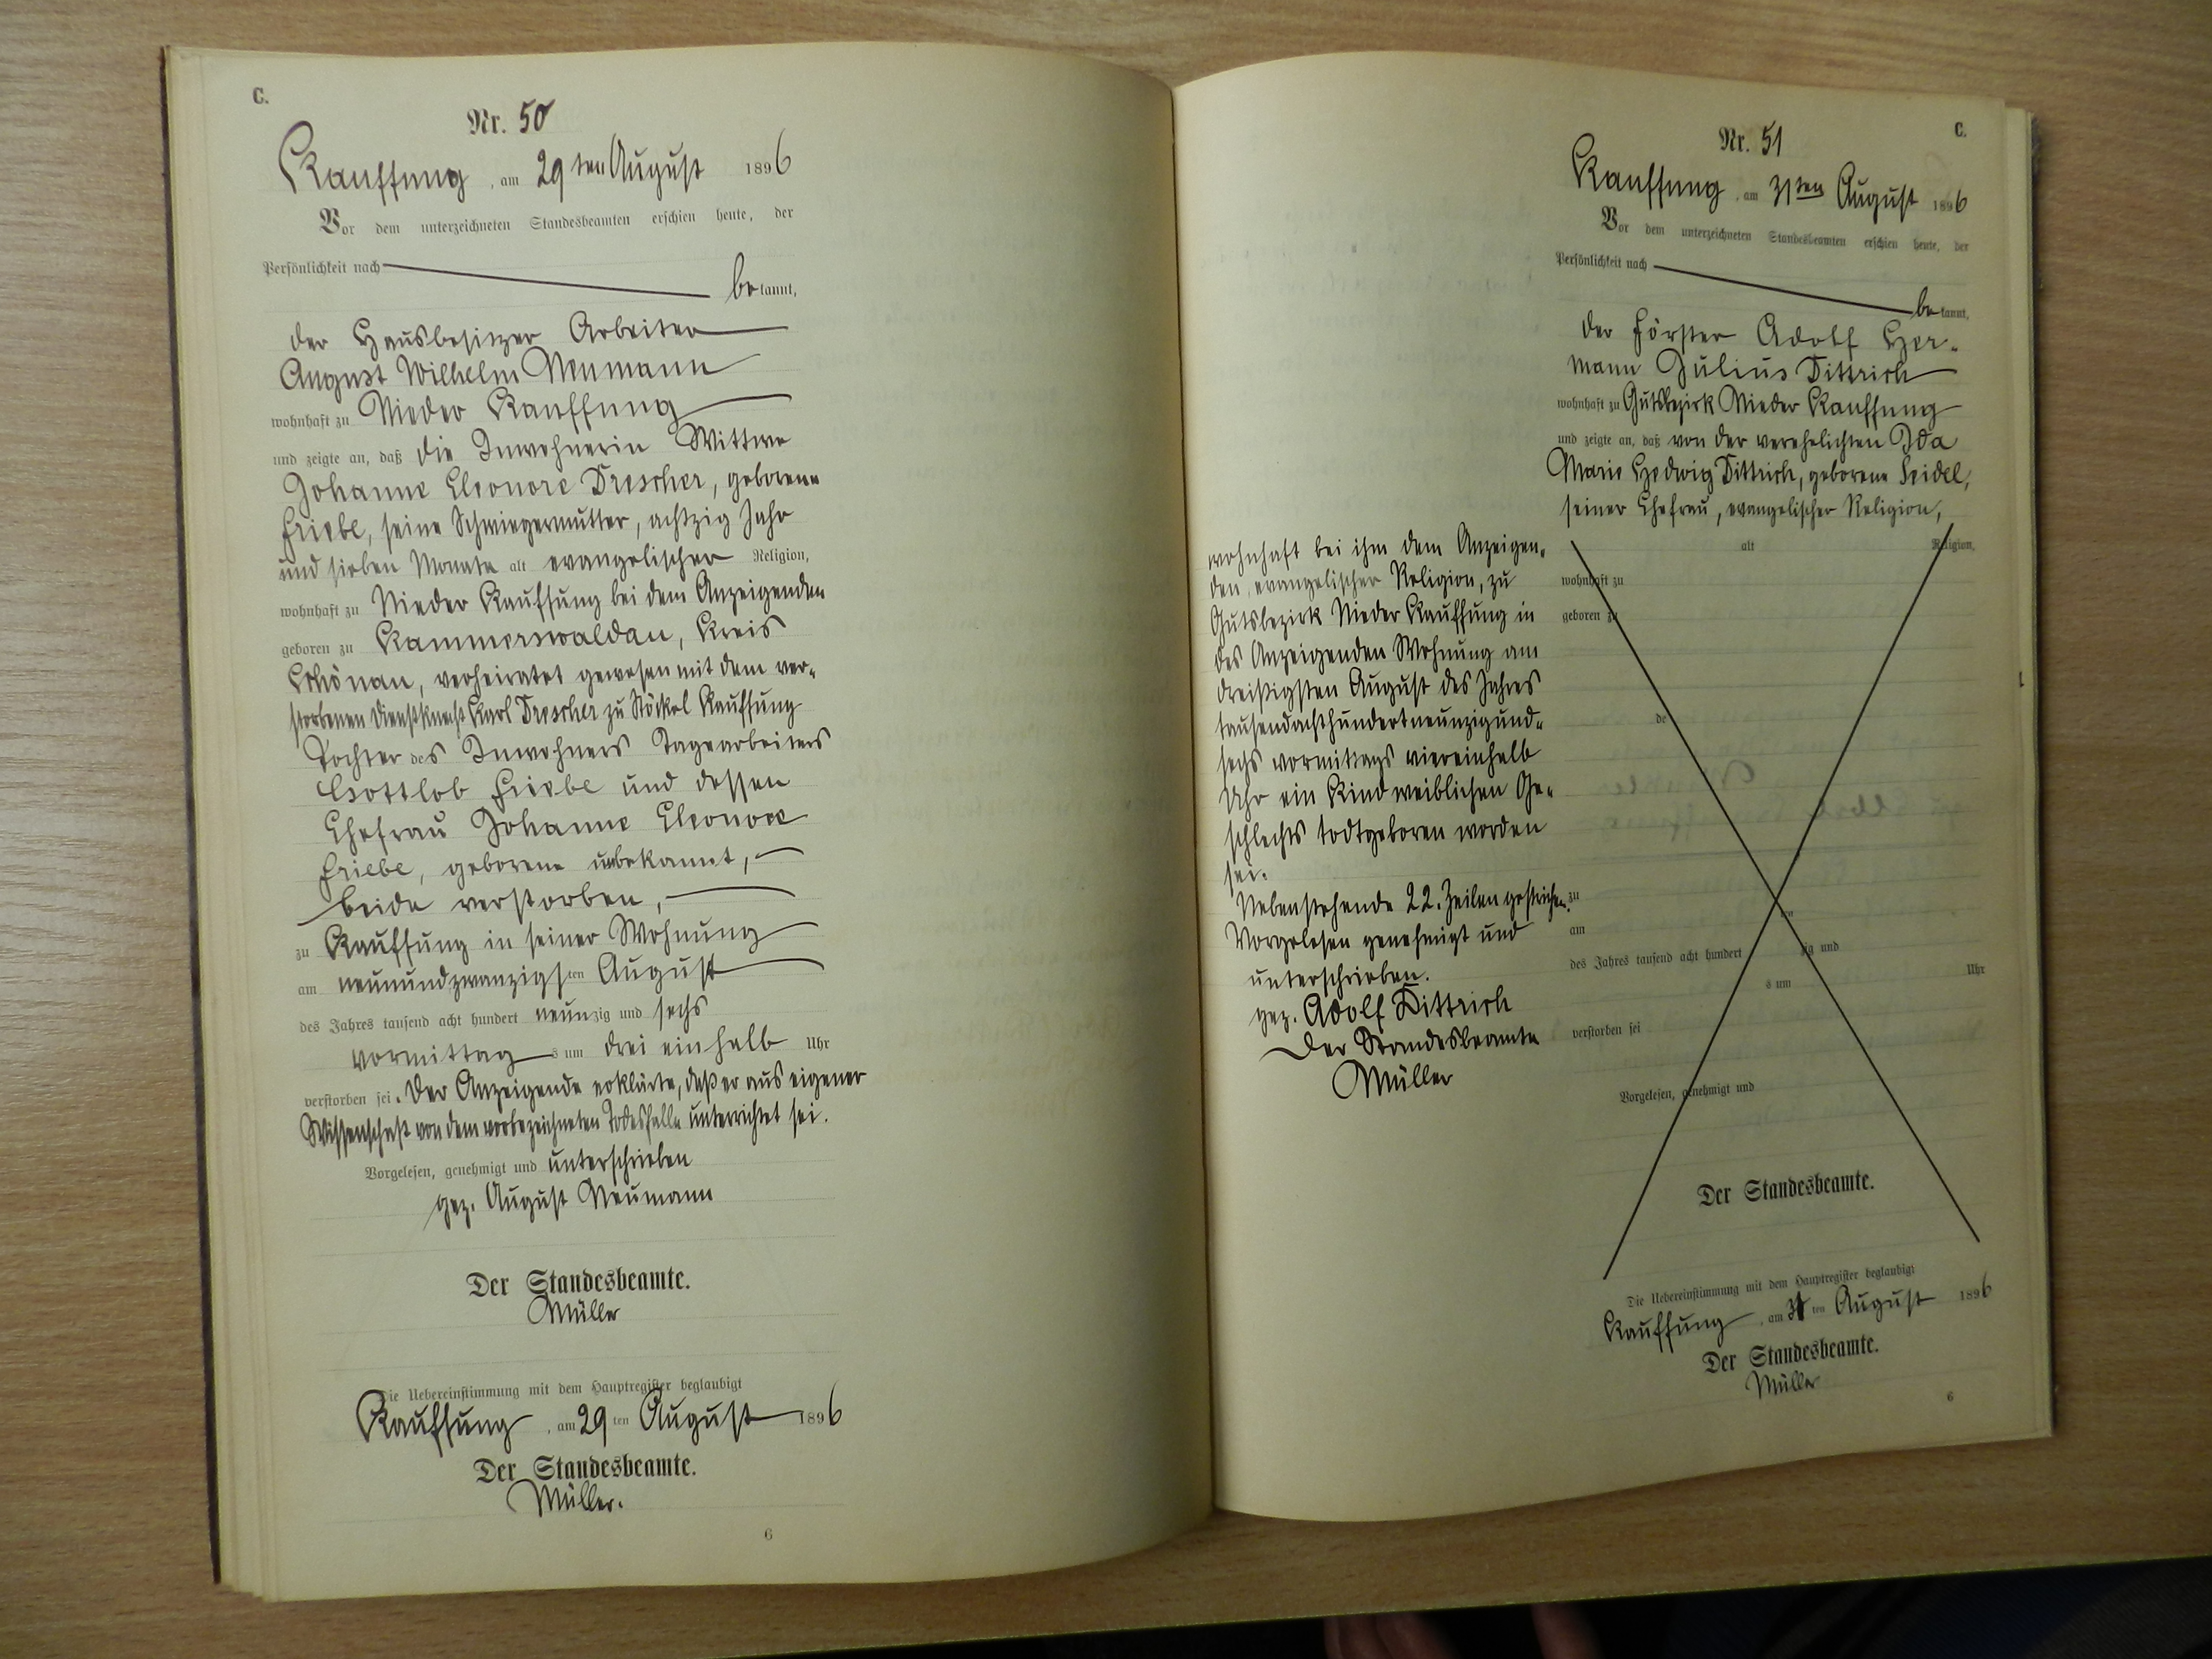 C.
Nr. 50
Kauffung, am 29ten August 1896
Vor dem unterzeichneten Standesbeamten erschien heute, der
Persönlichkeit nach
bekannt,
der Hausbesitzer Arbeiter
August Wilhelm Neumann
wohnhaft zu Nieder Kauffung
und zeigte an, daß die Inwohnerin Wittwe
Johanne Eleonore Drescher, geborene
Friebe, seine Schwiegermutter, achtzig Jahr
und sieben Monate alt evangelischer Religion,
wohnhaft zu Nieder Kauffung bei dem Anzeigenden
geboren zu Kammerswaldau, Kreis
Schönau, verheiratet gewesen mit dem ver-
storbenen Dienstknecht Karl Drescher zu Stöckel Kauffung
Tochter des Inwohners Tagearbeiters
Gottlob Friebe und dessen
Ehefrau Johanne Eleonore
Friebe, geborene unbekannt,
beide verstorben,
zu Kauffung in seiner Wohnung
am neunundzwanzigsten August
des Jahres tausend acht hundert neunzig und sechs
vormittags um drei einhalb Uhr
verstorben sei. Der Anzeigende erklärte, daß er aus eigener
Wissenschaft von dem vorbezeichneten Todesfalle unterrichtet sei.
Vorgelesen, genehmigt und unterschrieben
gez. August Neumann
Der Standesbeamte.
Müller
Die Uebereinstimmung mit dem Hauptregister beglaubigt
Kauffung, am 29ten August 1896
Der Standesbeamte.
Müller.
6
C.
Nr. 51
Kauffung, am 31ten August 1896
Vor dem unterzeichneten Standesbeamten erschien heute, der
Persönlichkeit nach
bekannt,
der Förster Adolf Her-
mann Julius Dittrich
wohnhaft zu Gutsbezirk Nieder Kauffung
und zeigte an, daß von der verehelichten Ida
Marie Hedwig Dittrich, geborene Seidel,
seiner Ehefrau, evangelischer Religion,
wohnhaft bei ihm dem Anzeigen-
den, evangelischer Religion, zu
Gutsbezirk Nieder Kauffung in
des Anzeigenden Wohnung am
dreißigsten August des Jahres
tausendachthundertneunzigund-
sechs vormittags viereinhalb
Uhr ein Kind weiblichen Ge-
schlechts todtgeboren worden
sei.
Nebenstehende 22. Zeilen gestrichen.
Vorgelesen genehmigt und
unterschrieben.
gez. Adolf Dittrich
Der Standesbeamte
Müller
alt Religion,
wohnhaft zu
geboren zu
de
zu
am
des Jahres tausend acht hundert zig und
s um Uhr
verstorben sei
Vorgelesen, genehmigt und
Der Standesbeamte.
Die Uebereinstimmung mit dem Hauptregister beglaubigt
Kauffung, am 31ten August 1896
Der Standesbeamte.
Müller
6